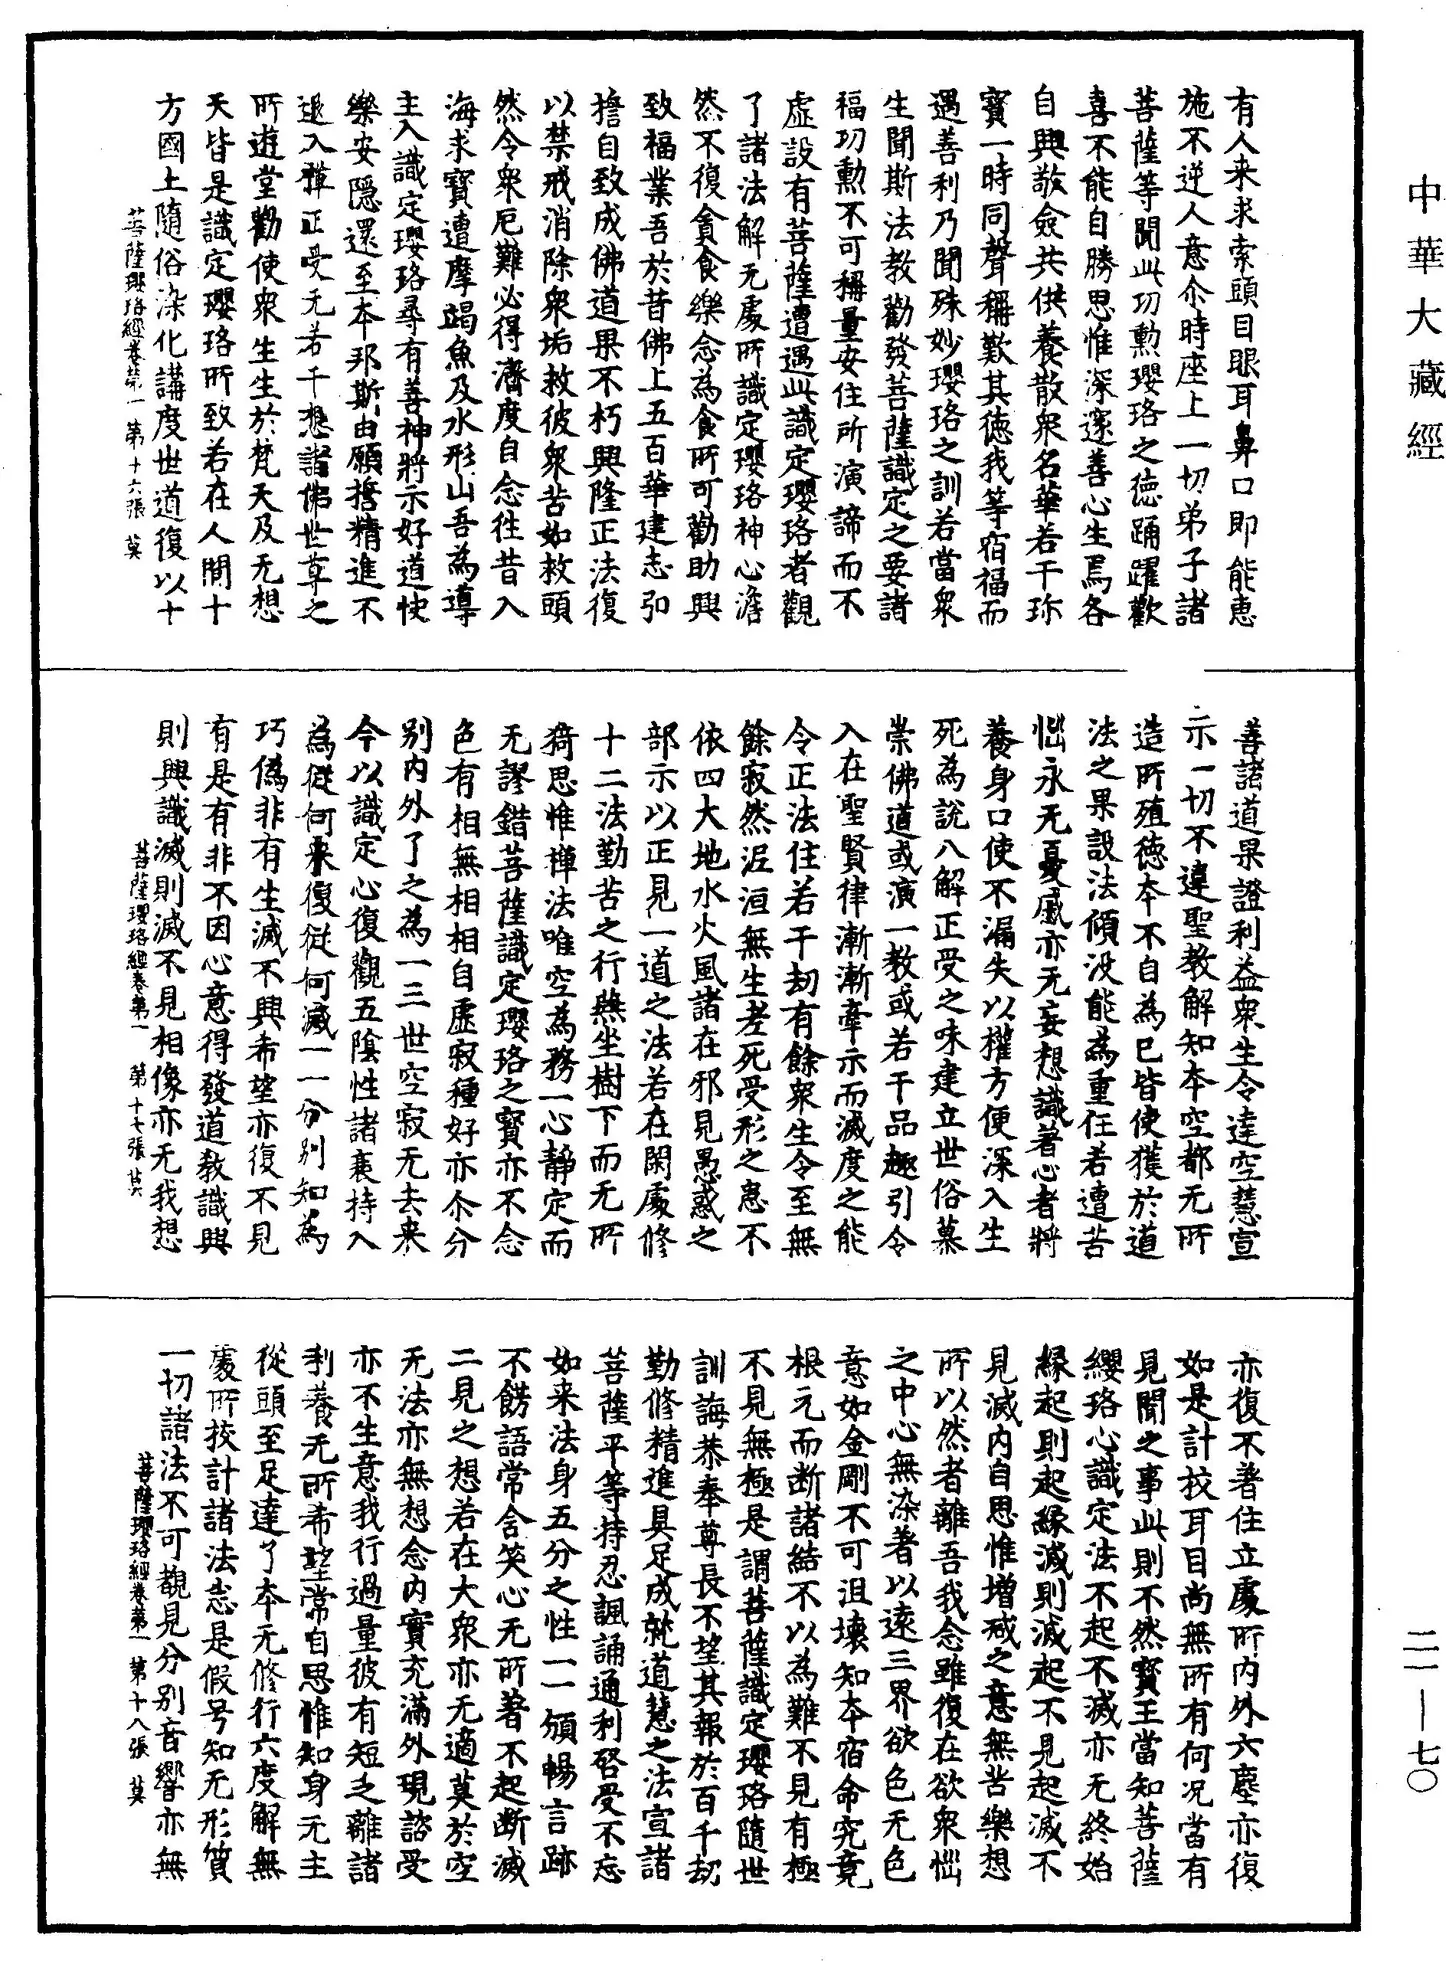 中華大藏經
有人来求索頭目眼耳鼻口即能惠
施不逆人意尒時座上一切弟子諸
菩薩等聞此功勲瓔珞之德踊躍歡
喜不能自勝思惟深邃善心生焉各
自興敬僉共供養散衆名華若干珎
寳一時同聲稱歎其德我等宿福而
遇善利乃聞殊妙瓔珞之訓若當衆
生聞斯法教勸發菩薩識定之要諸
福功勲不可稱量安住所演諦而不
虛設有菩薩遭遇此識定瓔珞者觀
了諸法解无處所識定瓔珞神心澹
然不復貪食樂念為食所可勸助興
致福業吾於昔佛上五百華建志弘
擔自致成佛道果不朽興隆正法復
以禁戒消除衆垢救彼衆苦如救頭
然令衆厄難必得濟度自念往昔入
海求寳遭摩竭魚及水形山吾為導
主入識定瓔珞尋有善神將示好道快
樂安隱還至本邦斯由願擔精進不
退入禪正受无若干想諸佛世尊之
所遊堂勸使衆生生於梵天及无想
天皆是識定瓔珞所致若在人間十
方國土隨俗染化講度世道復以十
菩薩瓔珞經卷第一 第十六張 莫
善諸道果證利益衆生令達空慧宣
示一切不違聖教解知本空都无所
造所殖德本不自為已皆使獲於道
法之果設法傾没能為重任若遭苦
惱永无憂慼亦无妄想識著心者將
養身口使不漏失以權方便深入生
死為說八解正受之味建立世俗慕
崇佛道或演一教或若干品趣引令
入在聖賢律漸漸牽示而滅度之能
令正法住若干劫有餘衆生令至無
餘寂然泥洹無生老死受形之患不
依四大地水火風諸在邪見愚惑之
部示以正見一道之法若在閑處修
十二法勤苦之行燕坐樹下而无所
猗思惟禪法唯空為務一心靜定而
无謬錯菩薩識定瓔珞之寳亦不念
色有相無相相自虛寂種好亦尒分
别内外了之為一三世空寂无去来
今以識定心復觀五陰性諸衰持入
為從何来復從何滅一一分别知為
巧偽非有生滅不興希望亦復不見
有是有非不因心意得發道教識興
則興識滅則滅不見相像亦无我想
菩薩瓔珞經卷第一 第十七張 莫
亦復不著住立處所内外六塵亦復
如是計校耳目尚無所有何况當有
見聞之事此則不然寳王當知菩薩
纓珞心識定法不起不滅亦无終始
緣起則起緣滅則滅起不見起滅不
見滅内自思惟增减之意無苦樂想
所以然者離吾我念雖復在欲衆惱
之中心無染著以遠三界欲色无色
意如金剛不可沮壞知本宿命究竟
根元而断諸結不以為難不見有極
不見無極是謂菩薩識定瓔珞隨世
訓誨恭奉尊長不望其報於百千劫
勤修精進具足成就道慧之法宣諸
菩薩平等持忍諷誦通利啓受不忘
如来法身五分之性一一頒暢言跡
不餝語常含笑心无所著不起断滅
二見之想若在大衆亦无適莫於空
无法亦無想念内實充滿外現諮受
亦不生意我行過量彼有短乏離諸
利養无所希望常自思惟知身无主
從頭至足達了本无修行六度解無
處所挍計諸法悉是假号知无形質
一切諸法不可覩見分别音響亦無
菩薩瓔珞經卷第一 第十八張 莫
二一—七〇